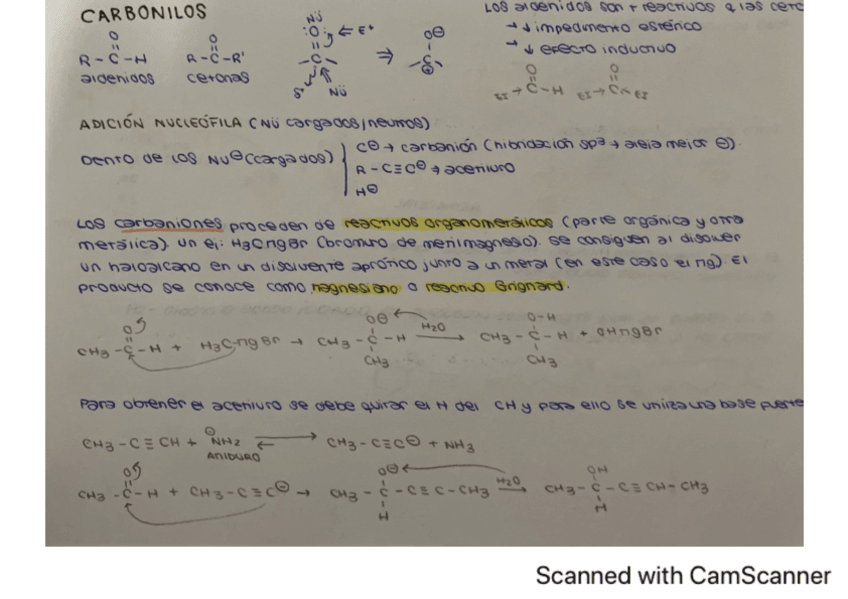 CARBONILOS
Los aldehidos son + reactivos q las ceto
→ ↓ impedimento estérico
→ ↓ efecto inductivo
O O Nü O⊖ O O
R - C - H R - C - R' :O: ← E⁺ ⇒ - C - EI → C - H EI → C ← EI
aldehidos cetonas - C - Nü
ADICIÓN NUCLEÓFILA (Nü cargados/neutros)
Dentro de los Nu⊖ (cargados)
C⊖ → carbanión (hibridación sp³ → aleja mejor ⊖).
R - C≡C⊖ → acetiluro
H⊖
Los carbaniones proceden de reactivos organometálicos (parte orgánica y otra
metálica). Un ej: H3CMgBr (bromuro de metilmagnesio). Se consiguen al disolver
un haloalcano en un disolvente aprótico junto a un metal (en este caso el Mg). El
producto se conoce como magnesiano o reactivo Grignard.
O O⊖ O-H
CH3 - C - H + H3C-MgBr → CH3 - C - H H2O → CH3 - C - H + OHMgBr
CH3 CH3
Para obtener el acetiluro se debe quitar el H del CH y para ello se utiliza una base fuerte
CH3 - C ≡ CH + ⊖NH2 ⇄ CH3 - C≡C⊖ + NH3
AMIDURO
O O⊖ OH
CH3 - C - H + CH3 - C≡C⊖ → CH3 - C - C≡C - CH3 H2O → CH3 - C - C≡CH - CH3
H H
Scanned with CamScanner